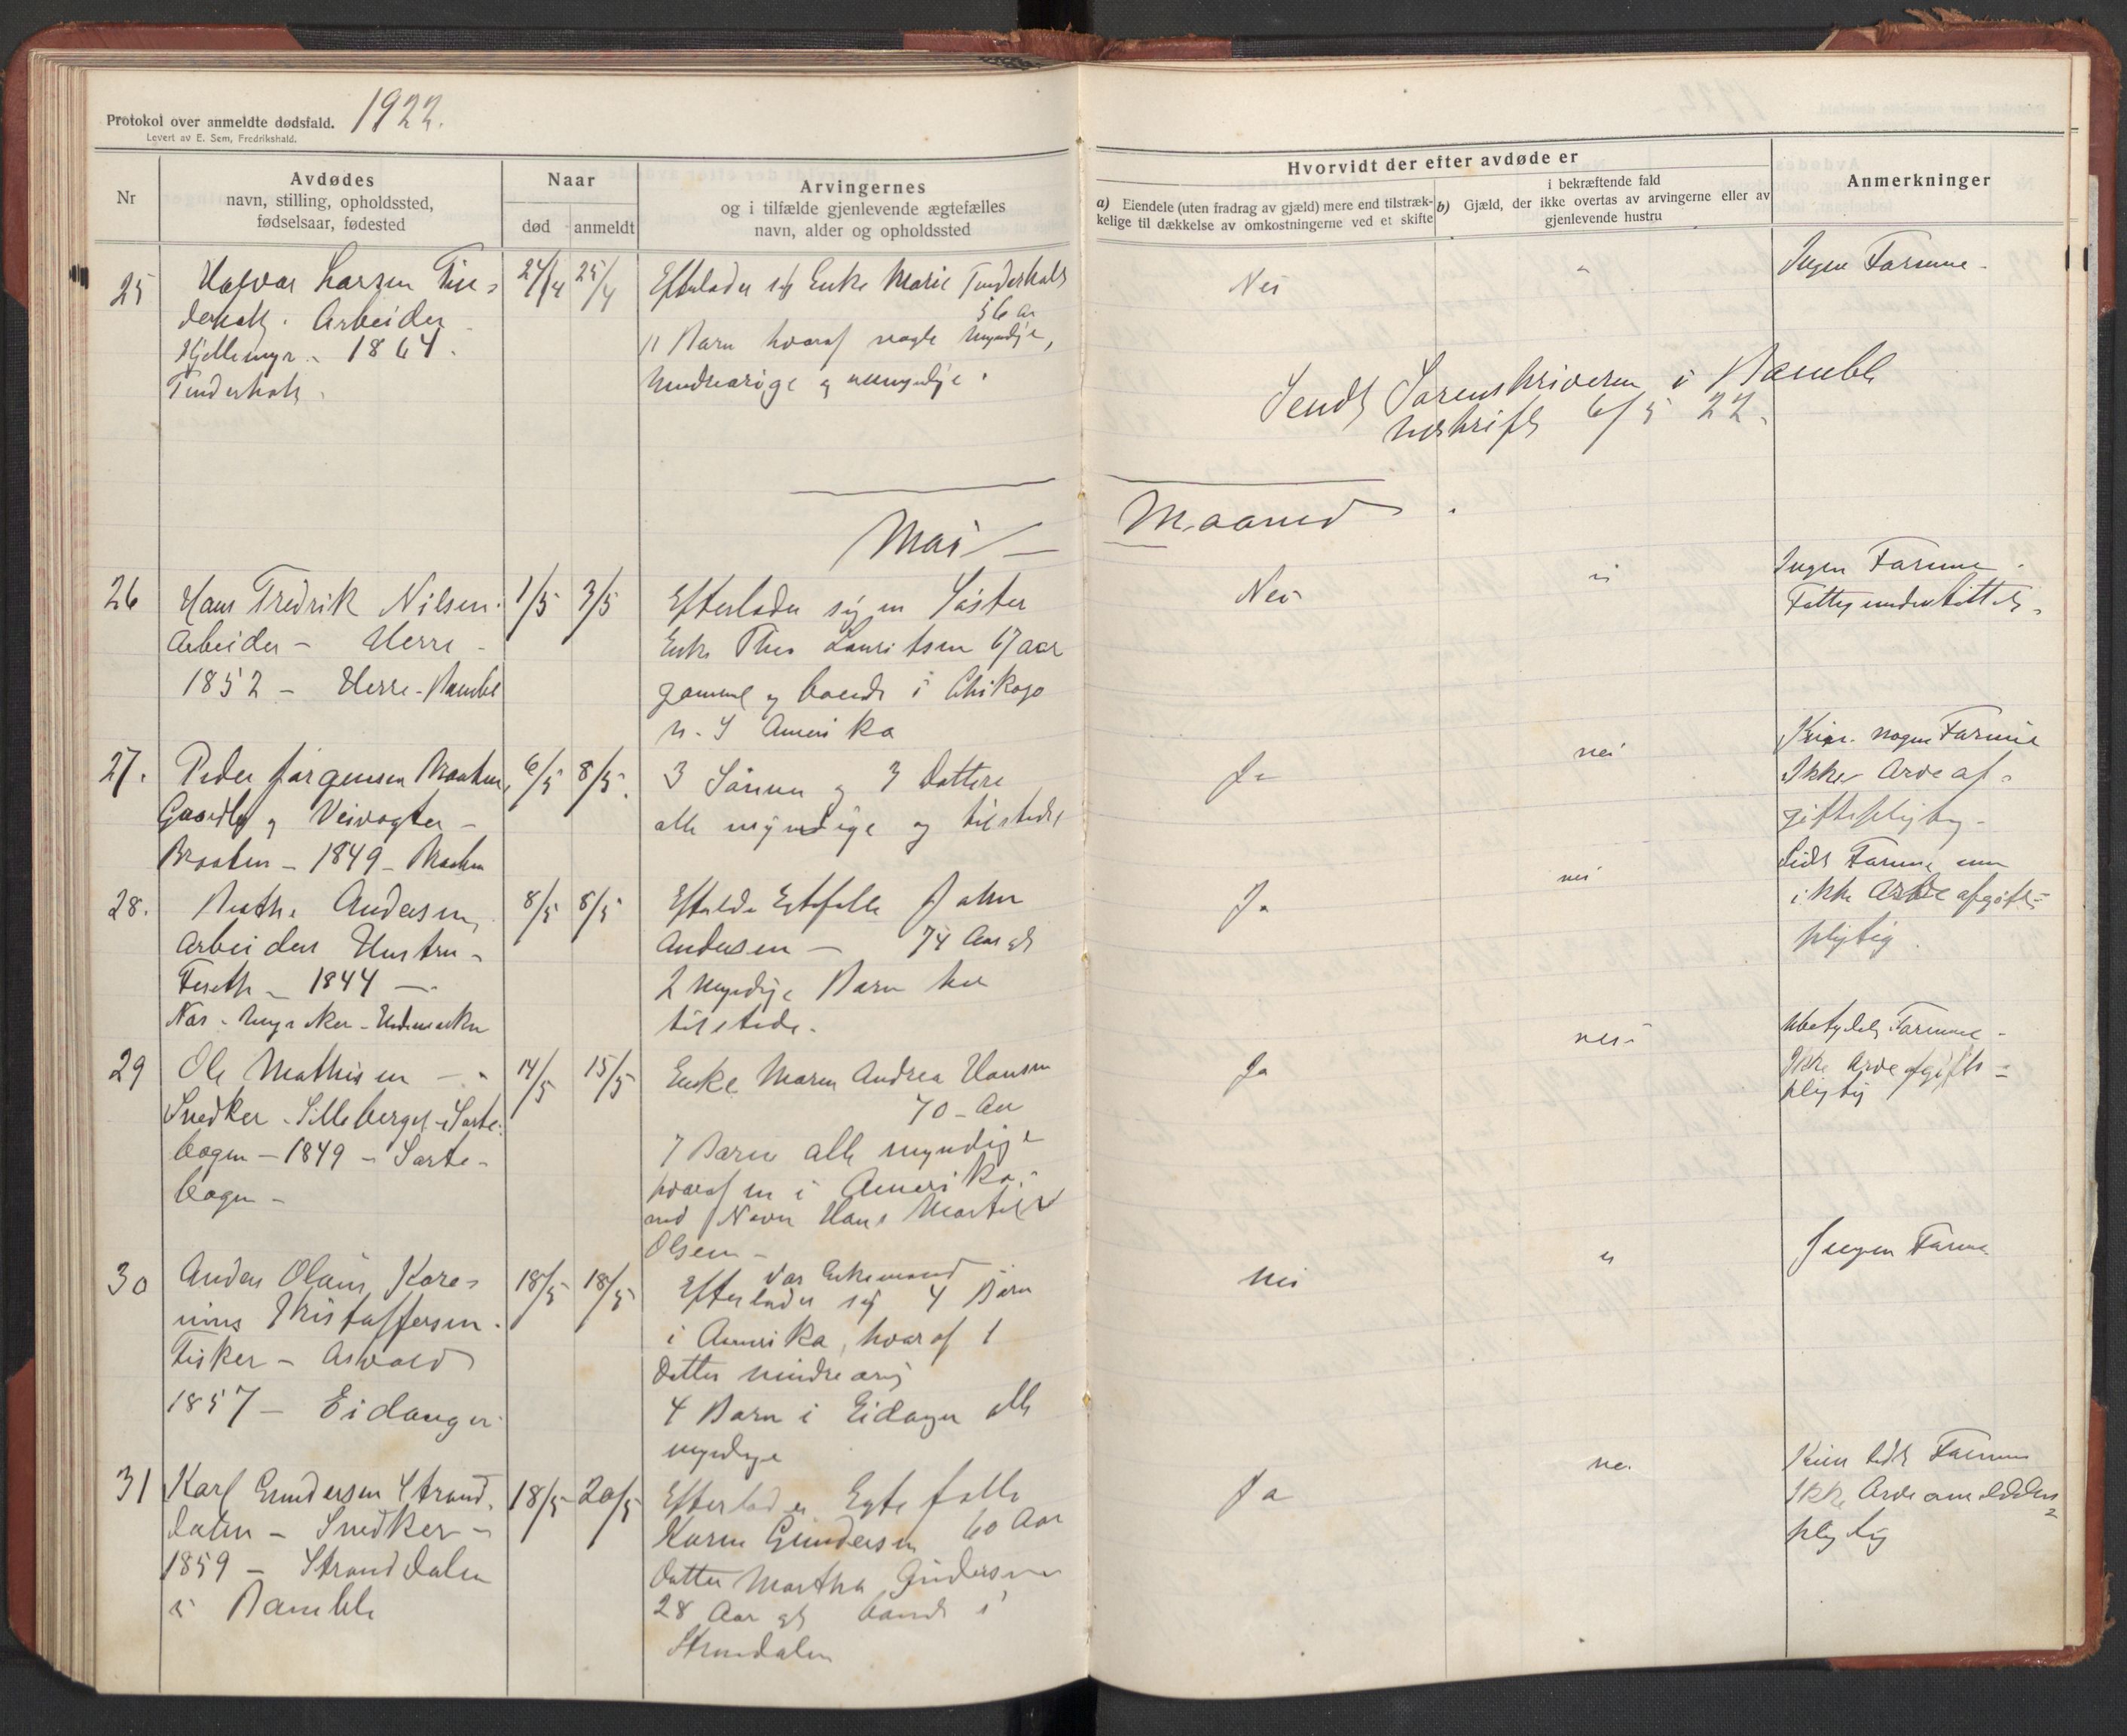 Protokol over anmeldte dødsfald. 1922.
Levert av E. Sem, Fredrikshald.
Nr
Avdødes
navn, stilling, opholdssted,
fødselsaar, fødested
Naar
død
anmeldt
Arvingernes
og i tilfælde gjenlevende ægtefælles
navn, alder og opholdssted
Hvorvidt der efter avdøde er
a) Eiendele (uten fradrag av gjæld) mere end tilstræk-
kelige til dækkelse av omkostningerne ved et skifte
i bekræftende fald
b) Gjæld, der ikke overtas av arvingerne eller av
gjenlevende hustru
Anmerkninger
25
Halvor Larsen Tin-
derholt. Arbeider
Hjellemyr - 1864.
Tinderholt.
24/4 25/4
Efterlader sig Enke Marie Tinderholt
56 aar
11 Barn hvoraf nogle myndige,
mindreaarige og umyndige.
Nei
"
Ingen Formue -
Sendt Sorenskriveren i Bamble
Udskrift 6/5 22.
Mai - Maaned.
26
Hans Fredrik Nilsen.
Arbeider - Herre -
1852 - Herre - Bamble
1/5 3/5
Efterlader sig en Søster
Enke Thea Lauritsen 67 aar
gammel og boende i Chikago
N. Y Amerika
Nei
"
Ingen Formue.
Fattigunderstøttet.
27.
Peder Jørgensen Braaten,
Gaardbr og Veivogter -
Braaten - 1849 - Braaten
6/5 8/5.
3 Sønner og 3 Døttre
alle myndige og tilstede
Ja
nei
nogen Formue
Ikke Arveaf-
giftspligtig -
28.
Andersen,
Arbeiders Hustru -
1844 -
8/5 8/5
Efterlader Egtefelle John
Andersen - 74 Aar gl
2 myndige Barn her
tilstede.
Ja
nei
Lidt Formue men
ikke Arveafgifts-
pligtig.
29
Ole Mathisen - "
Snedker - Silleberget - Sarte-
bogen - 1849 - Sarte-
bogen -
14/5 15/5
Enke Maren Andrea Hansen
70 - Aar
7 Barn alle myndige
hvoraf en i Amerika.
ved Navn Hans
Olsen -
Ja
nei -
Ubetydelig Formue -
Ikke Arveafgifts-
pligtig
30
Anders Olaus Kore-
nius Kristoffersen.
Fisker - Asvald
1857 - Eidanger
18/5 18/5
Var Enkemand
Efterlader sig 4 Børn
i Amerika, hvoraf 1
Datter mindreaarig
4 Barn i Eidanger alle
myndige
Nei
"
Ingen Formue
31
Karl Gundersen Strand-
dalen - Snedker -
1859 - Stranddalen
i Bamble
18/5 20/5
Efterlader Egtefelle
Karen Gundersen 60 Aar
Datter Martha Gundersen
28 Aar gl boende i
Strandalen
Ja
nei
Kun lidt Formue
Ikke Arveanmeldelses-
pligtig